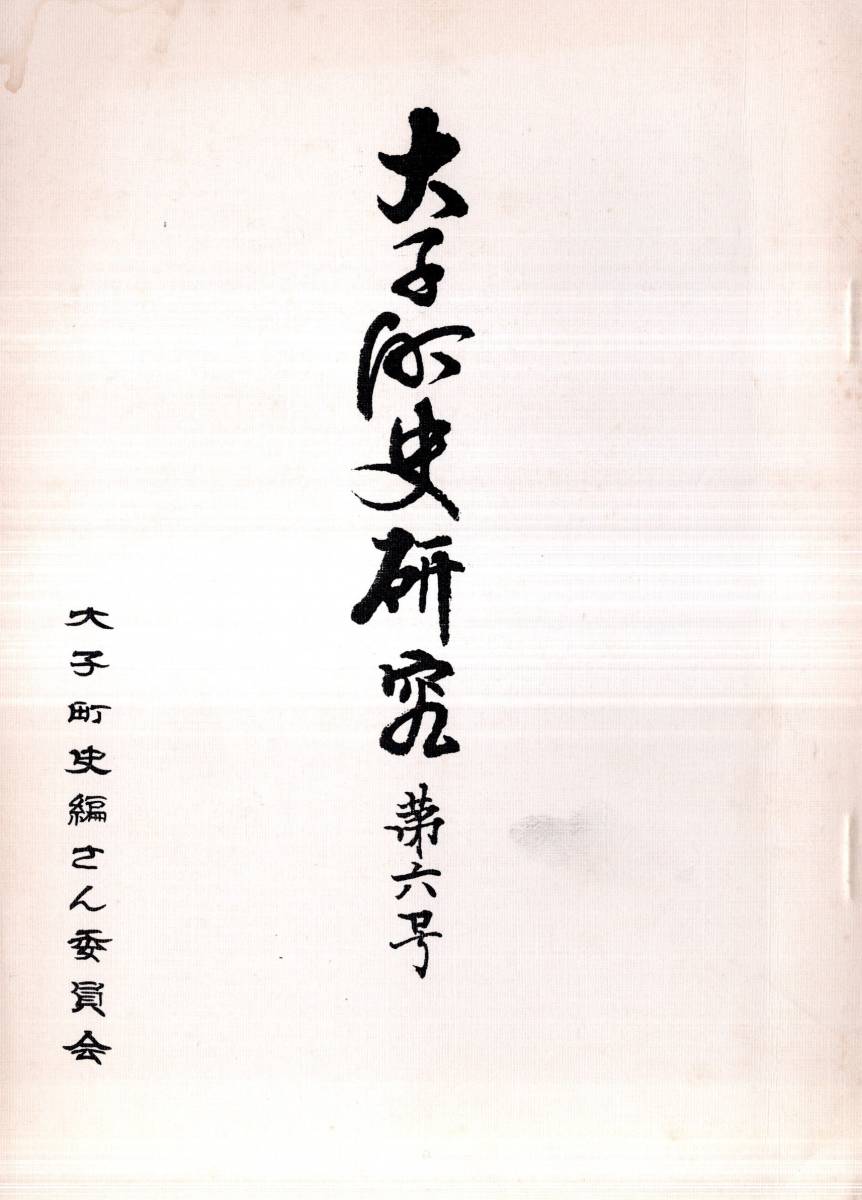 大子町史研究 第六号
大子町史編さん委員会